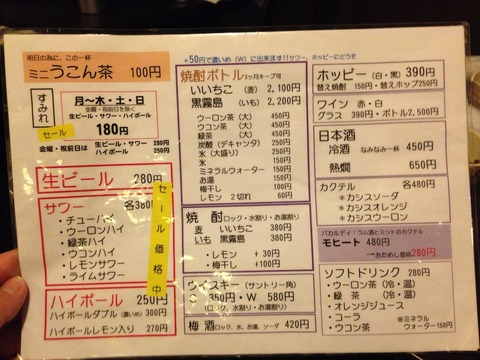 明日の為に、この一杯
ミニうこん茶 100円
すみれ
セール
月～木・土・日
金曜・祝前日を除く
生ビール・サワー・ハイボール
180円
金曜・祝前日は 生ビール・サワー 280円
ハイボール 250円
生ビール 280円
サワー 各380円
・チューハイ
・ウーロンハイ
・緑茶ハイ
・ウコンハイ
・レモンサワー
・ライムサワー
セール価格中
ハイボール 250円
ハイボールダブル(濃いめ) 300円
ハイボールレモン入り 270円
+50円で濃いめ(W)に出来ます!!サワー、ホッピーにどうぞ
焼酎ボトル 3ヶ月キープ可
いいちこ (麦) 2,100円
黒霧島 (いも) 2,200円
ウーロン茶 (大) 450円
ウコン茶 (大) 450円
緑茶 (大) 450円
炭酸(デキャンタ) 450円
氷
氷(大盛り)
ミネラルウォーター 150円
お湯
梅干し
レモン 2切れ 60円
焼 酎 ロック・水割り・お湯割り
麦 いいちこ 380円
いも 黒霧島 380円
・レモン +30円
・梅干し +100円
ウィスキー(サントリー角)
S 350円・W 580円
(ロック、水割り・お湯割り)
梅酒 ロック、水、お湯、ソーダ 420円
ホッピー(白・黒)390円
替え焼酎 150円・替えホップ250円
ワイン 赤・白
グラス 390円・ボトル2,500円
日本酒
冷酒 なみなみ一杯 450円
熱燗 650円
カクテル 各480円
*カシスソーダ
*カシスオレンジ
*カシスウーロン
バカルディ:ラム酒とミントのカクテル
モヒート 480円
→おためし価格280円
ソフトドリンク 280円
・ウーロン茶(冷・温)
・緑 茶(冷・温)
・オレンジジュース
・コーラ
・ウコン茶
*ミネラル
ウォーター150円